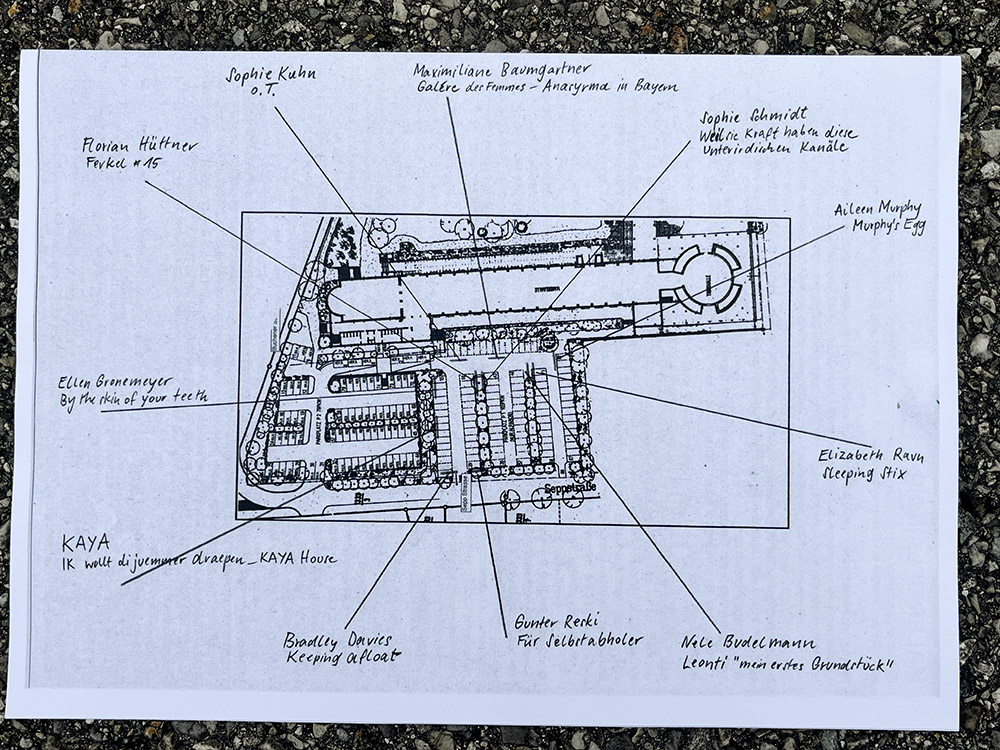 Sophie Kuhn
o.T.
Maximiliane Baumgartner
Galère des Femmes – Anasyrma in Bayern
Sophie Schmidt
Weil sie Kraft haben diese
Unterirdischen Kanäle
Florian Hüttner
Ferkel #15
Aileen Murphy
Murphy's Egg
Ellen Gronemeyer
By the skin of your teeth
Elizabeth Ravn
Sleeping Stix
Seppstraße
KAYA
IK wollt di juemmer draepen_KAYA House
Bradley Davies
Keeping afloat
Gunter Reski
Für Selbstabholer
Nele Budelmann
Leonti "mein erstes Grundstück"